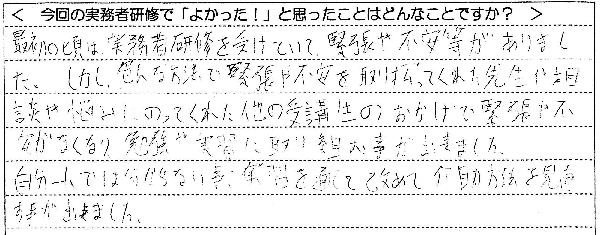 ＜ 今回の実務者研修で「よかった！」と思ったことはどんなことですか？ ＞
最初の頃は、実務者研修を受けていて、緊張や不安等がありまし
た。しかし、色んな方法で緊張や不安を取り払ってくれた先生や相
談や悩みにのってくれた他の受講生のおかげで緊張や不
安がなくなり勉強や実習に取り組む事が出来ました。
自分一人では分からない事、実習を通して改めて介助方法を見直
す事が出来ました。